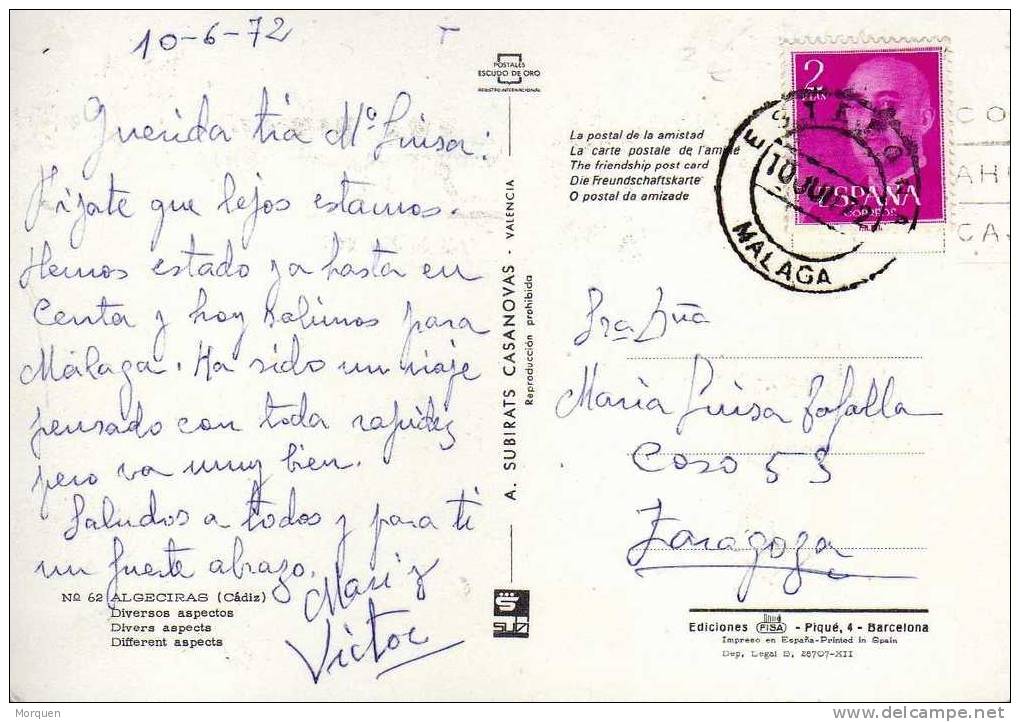 10-6-72
Querida tía Mª Luisa:
Fíjate que lejos estamos.
Hemos estado ya hasta en
Ceuta y hoy salimos para
Málaga. Ha sido un viaje
pensado con toda rapidez
pero va muy bien.
Saludos a todos y para ti
un fuerte abrazo.
Mari y
Victor
Nº 62 ALGECIRAS (Cádiz)
Diversos aspectos
Divers aspects
Different aspects
POSTALES
ESCUDO DE ORO
REGISTRO INTERNACIONAL
A. SUBIRATS CASANOVAS - VALENCIA
Reproducción prohibida
SUBI
La postal de la amistad
La carte postale de l'amitié
The friendship post card
Die Freundschaftskarte
O postal da amizade
2
PTAS
ESPAÑA
CORREOS
ESTEPONA
10 JUN 72
MALAGA
CO
AH
CA
Sra Dña
María Luisa Rafalla
Coso 53
Zaragoza
Ediciones FISA - Piqué, 4 - Barcelona
Impreso en España-Printed in Spain
Dep. Legal B, 28707-XII
Morquen
delcampe.net